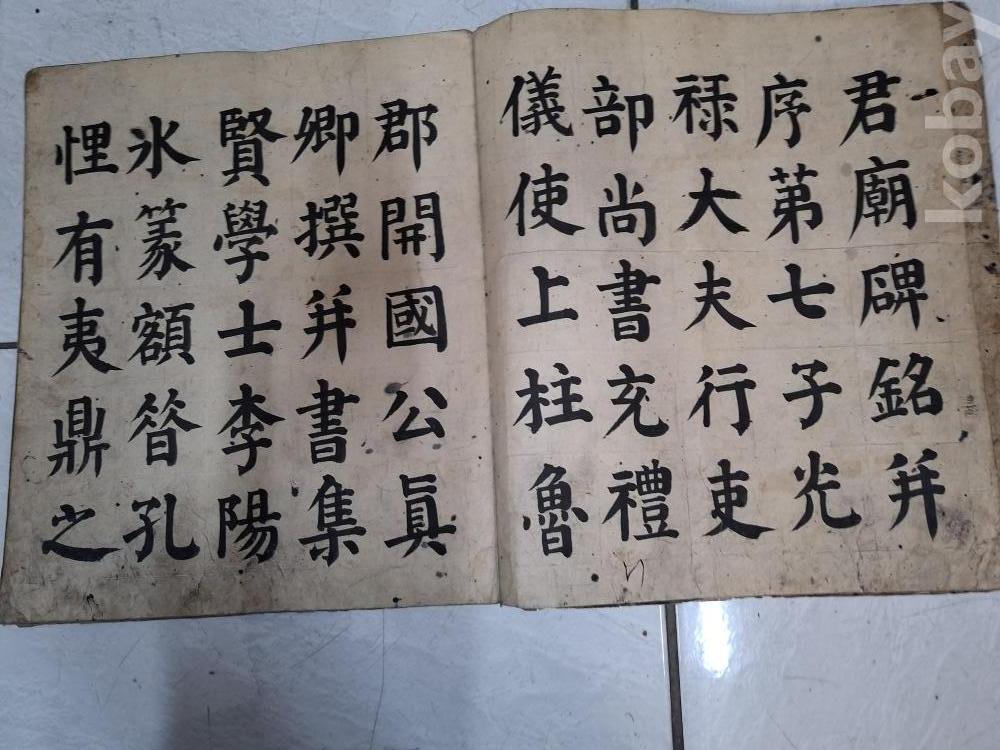 君廟碑銘并
序第七子光
祿大夫行吏
部尚書充禮
儀使上柱魯
郡開國公眞
卿撰并書集
賢學士李陽
氷篆額昝孔
悝有夷鼎之
kobay